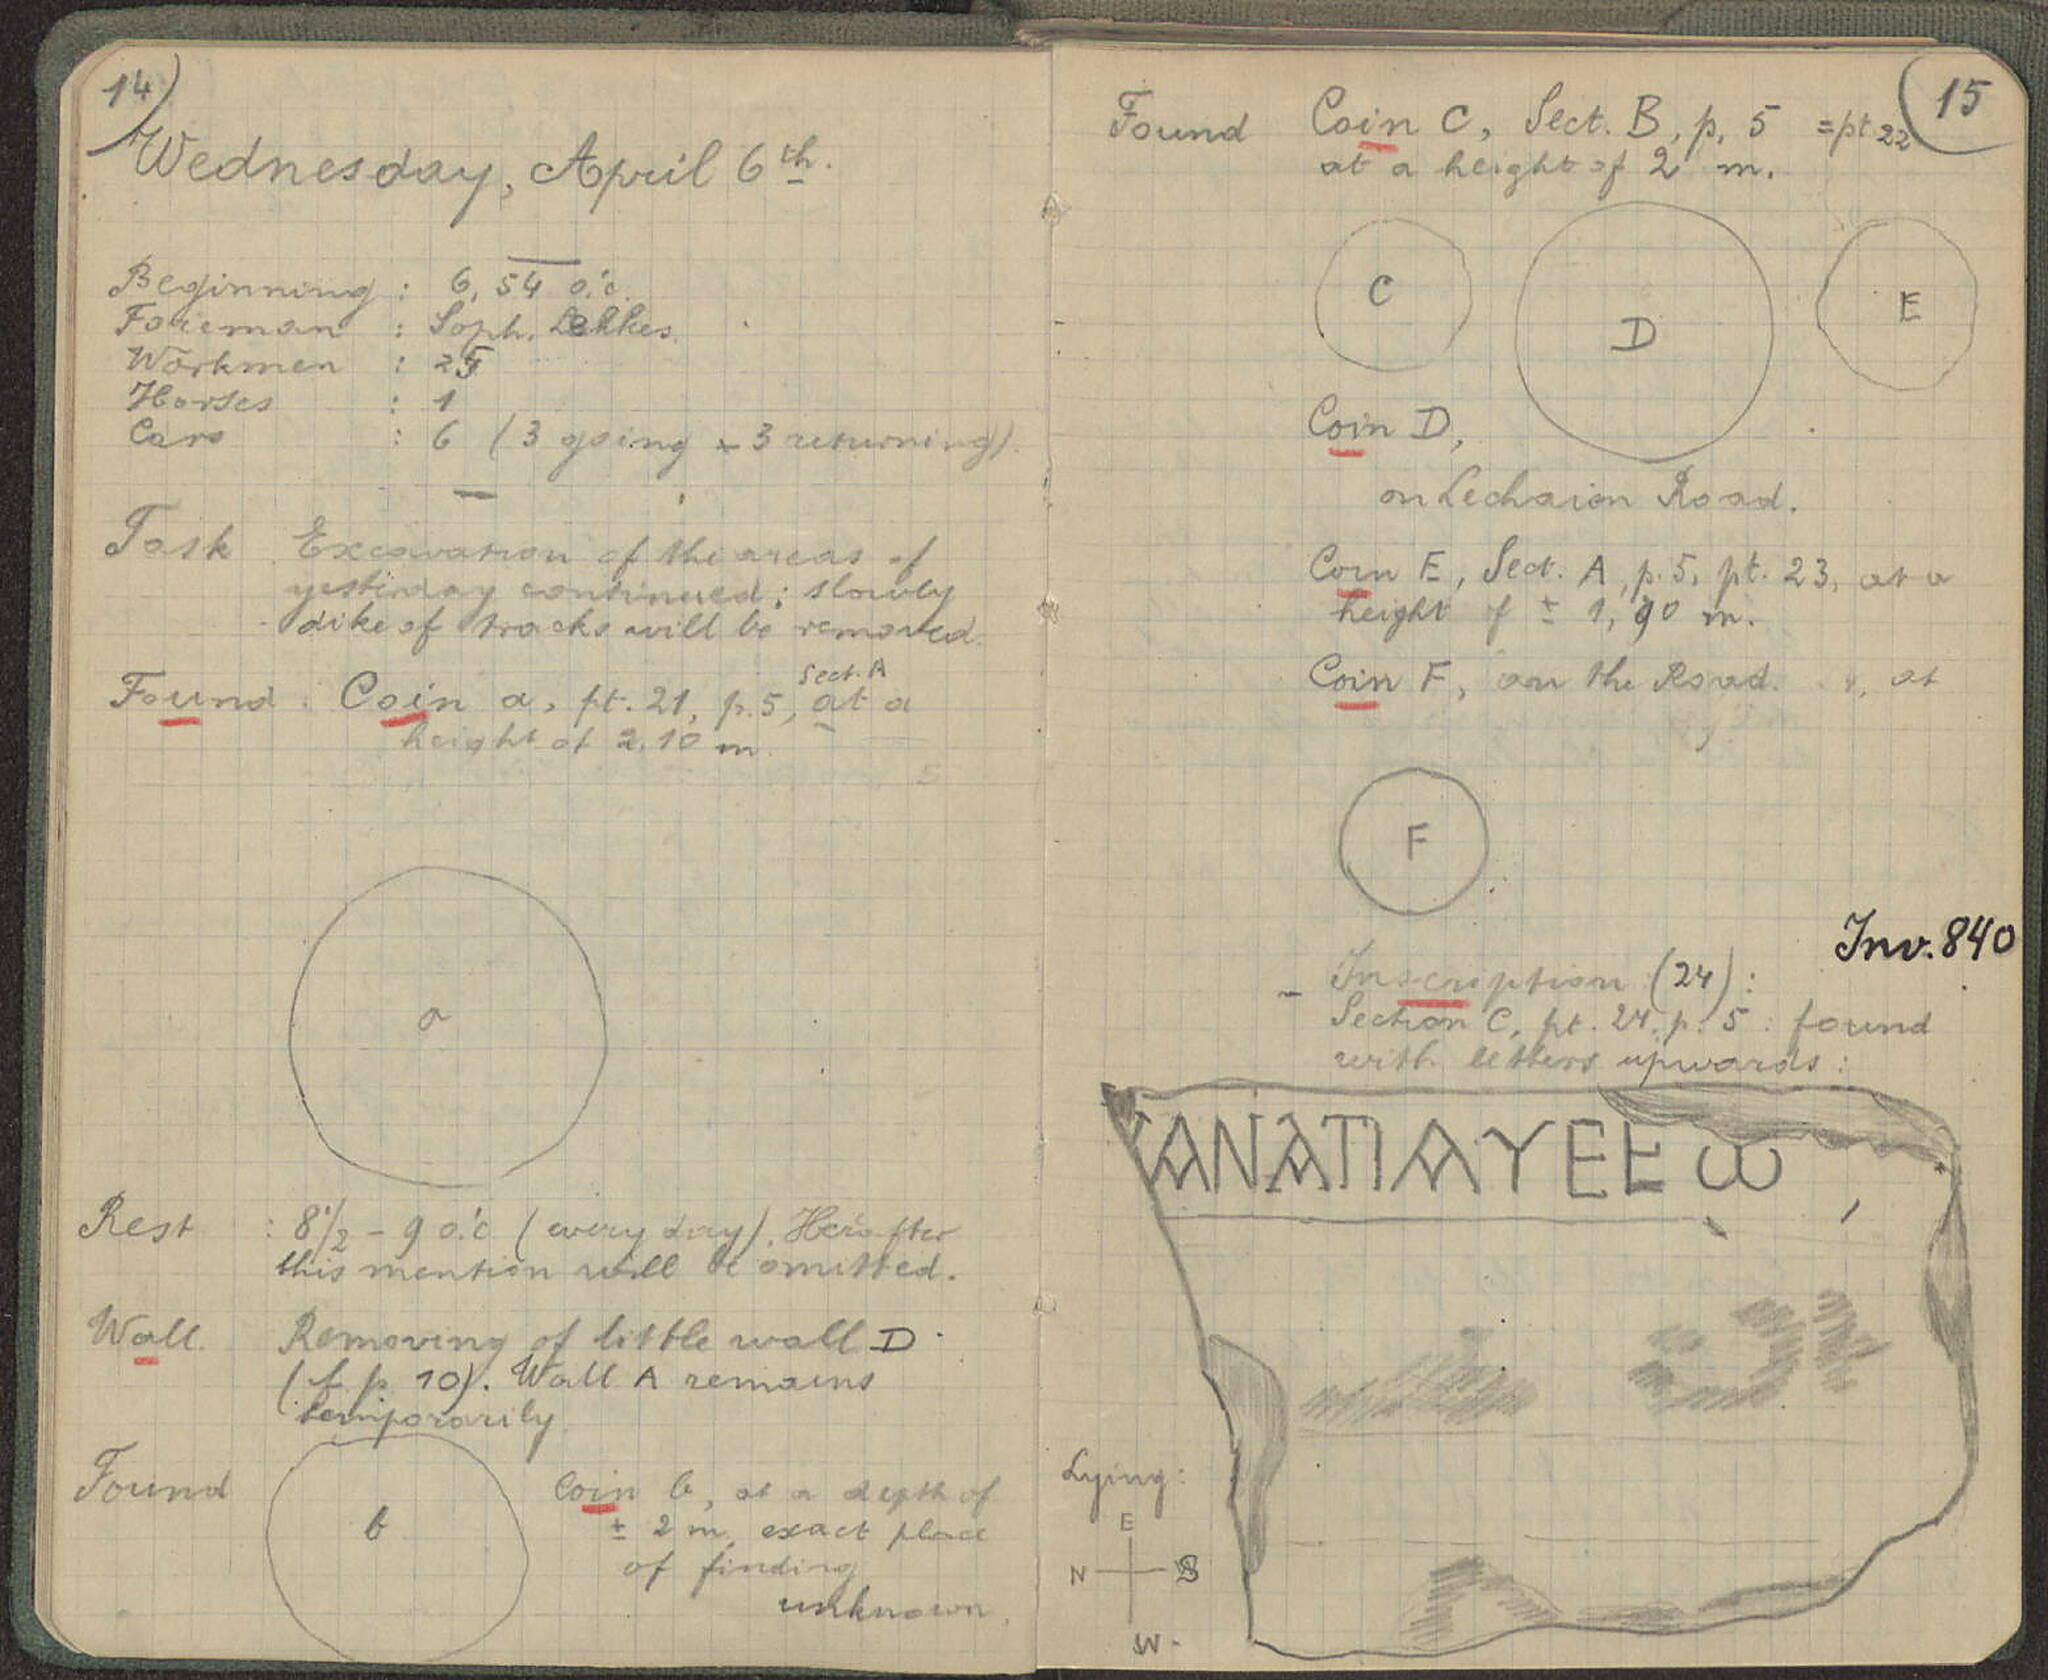 14
Wednesday, April 6th.
Beginning : 6,54 o'c.
Foreman : Soph. Lekkes.
Workmen : 25
Horses : 1
Cars : 6 (3 going + 3 returning).
Task Excavation of the areas of
yesterday continued; slowly
dike of tracks will be removed.
Sect. A
Found : Coin a, pt. 21, p. 5, at a
height of 2,10 m.
a
Rest : 8 1/2 - 9 o'c (every day). Hereafter
this mention will be omitted.
Wall. Removing of little wall D.
(cf. p. 10). Wall A remains
temporarily
Found
b
Coin b, at a depth of
± 2 m, exact place
of finding
unknown.
15
Found Coin C, Sect. B, p. 5 = pt 22
at a height of 2 m.
C D E
Coin D,
on Lechaion Road.
Coin E, Sect. A, p. 5, pt. 23, at a
height of ± 1,90 m.
Coin F, on the Road. at
F
Inv. 840
- Inscription (24):
Section C, pt. 24, p. 5 : found
with letters upwards :
ΑΝΑΠΑΥΕΕω
Lying:
E
N S
W.